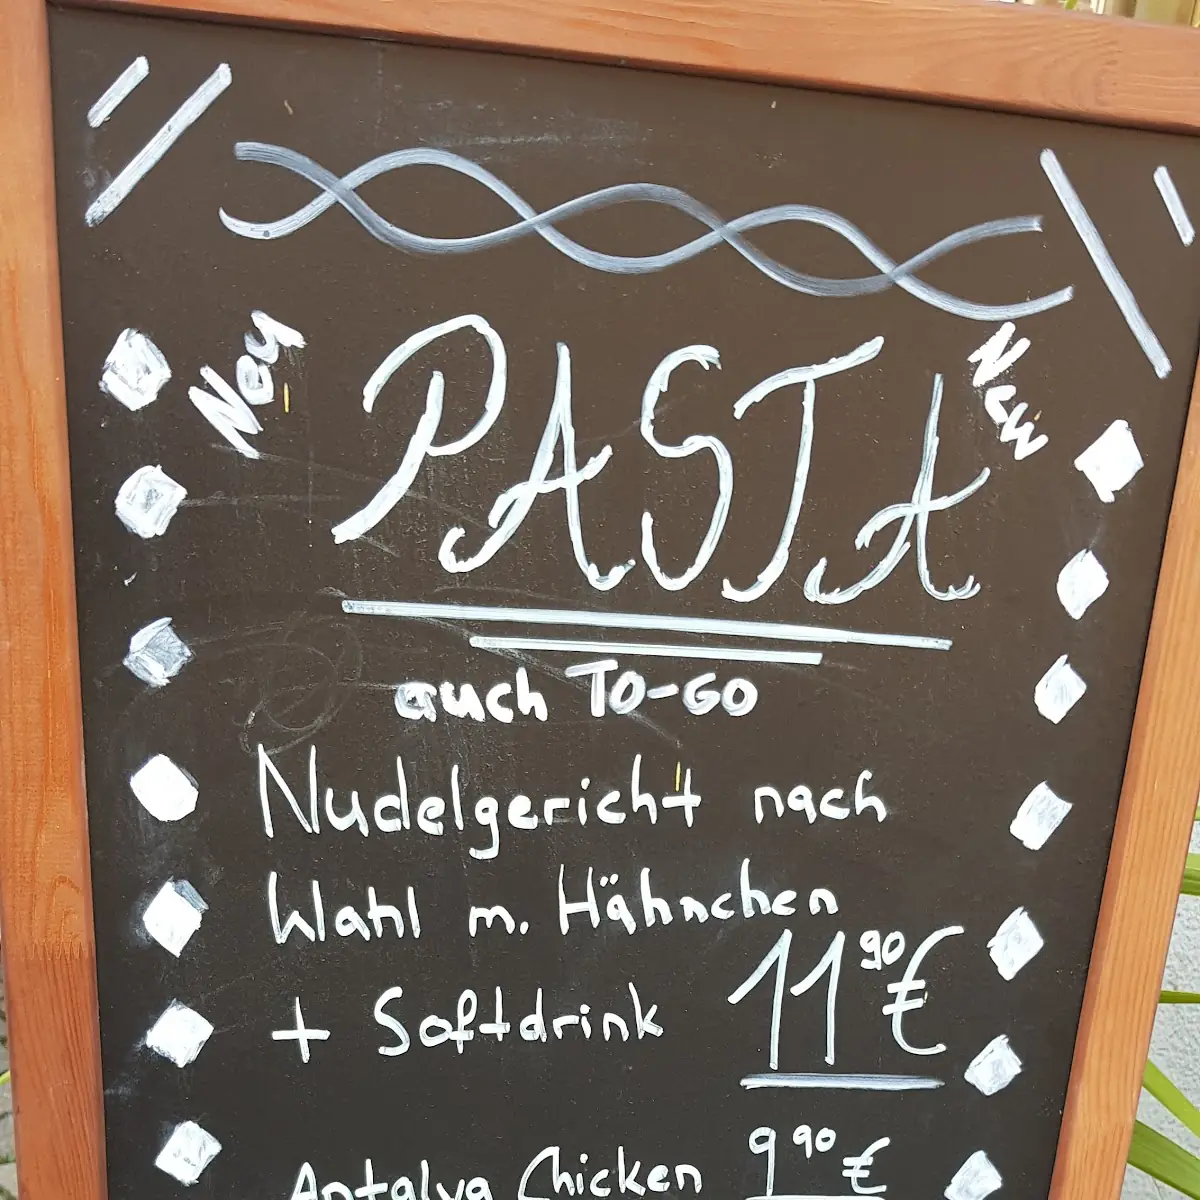 Neu
PASTA
New
auch TO-GO
Nudelgericht nach
Wahl m. Hähnchen
+ Softdrink 11 90 €
Antalya Chicken 9 90 €